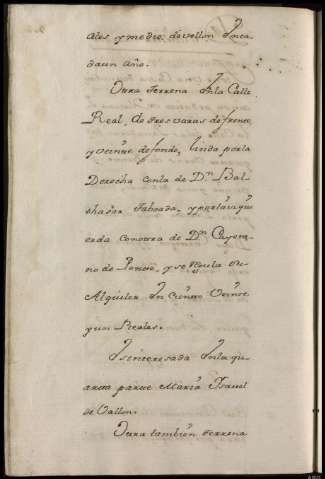 ales y medio de vellon En ca
da un año.
Otra terrena En la Calle
Real, de tres varas de frente,
y veinte de fondo, linda por la
Derecha con la de Dn. Bal
thasar Taboada, y por la izqu
ierda con otra de Dn. Cayeta
no de Ponte, y se regula su
Alquiler En Ciento Veinte
y un Reales.
Es interesada En la qu
arta parte María Isavel
de Vallon.
Otra también terrena